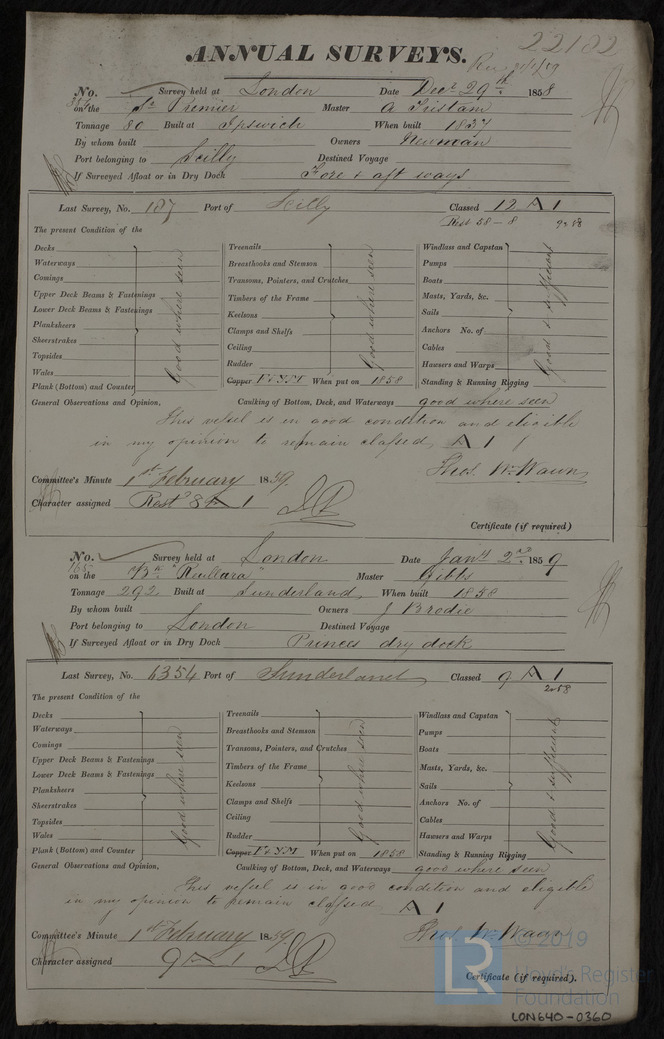 22102
ANNUAL SURVEYS.
No. 354 Survey held at London Date Decr 29th 1858
on the Sr Premier Master A Tristam
Tonnage 80 Built at Ipswich When built 1837
By whom built Owners Newman
Port belonging to Scilly Destined Voyage
If Surveyed Afloat or in Dry Dock Fore & aft ways
Last Survey, No. 187 Port of Scilly Classed 12 A 1
Rest 58-8
The present Condition of the
Decks Treenails Windlass and Capstan
Waterways Breasthooks and Stemson Pumps
Comings Transoms, Pointers, and Crutches Boats
Upper Deck Beams & Fastenings Timbers of the Frame Masts, Yards, &c.
Lower Deck Beams & Fastenings Keelsons Sails
Planksheers Clamps and Shelfs Anchors No. of
Sheerstrakes Ceiling Cables
Topsides Rudder Hawsers and Warps
Wales Copper F & YM When put on 1858 Standing & Running Rigging
Plank (Bottom) and Counter
Good where seen Good where seen Good & sufficient
General Observations and Opinion, Caulking of Bottom, Deck, and Waterways good where seen
This vessel is in good condition and eligible
in my opinion to remain classed A 1
Thos. Wm Wawn
Committee's Minute 1st February 1859.
Character assigned Restd 8 A 1
Certificate (if required)
No. 165 Survey held at London Date Jany 2nd 1859
on the Master Gibbs
Tonnage 292 Built at Sunderland When built 1858
By whom built Owners J Brodie
Port belonging to London Destined Voyage
If Surveyed Afloat or in Dry Dock Princes dry dock
Last Survey, No. 6354 Port of Sunderland Classed 9 A 1
2 58
The present Condition of the
Decks Treenails Windlass and Capstan
Waterways Breasthooks and Stemson Pumps
Comings Transoms, Pointers, and Crutches Boats
Upper Deck Beams & Fastenings Timbers of the Frame Masts, Yards, &c.
Lower Deck Beams & Fastenings Keelsons Sails
Planksheers Clamps and Shelfs Anchors No. of
Sheerstrakes Ceiling Cables
Topsides Rudder Hawsers and Warps
Wales Copper F & YM When put on 1858 Standing & Running Rigging
Plank (Bottom) and Counter
Good where seen Good where seen Good & sufficient
General Observations and Opinion, Caulking of Bottom, Deck, and Waterways good where seen
This vessel is in good condition and eligible
in my opinion to remain classed A 1
Thos. Wm Wawn
Committee's Minute 1st February 1859.
Character assigned 9 A 1
Certificate (if required).
LR © 2019
Lloyd's Register
Foundation
LON640-0360